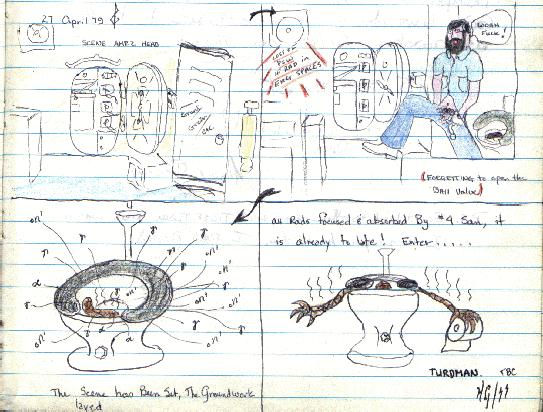 27 April 79
SCENE AMR2 HEAD
LOSS OF
PSW
IN RAD in
ENG SPACES
WOAH
FUCK!
(FORGETTING to open the
Ball Value)
all Rads focused & absorbed By #4 San, it
is already to late! Enter.....
The Scene has Been Set, The Groundwork
layed
TURDMAN. TBC